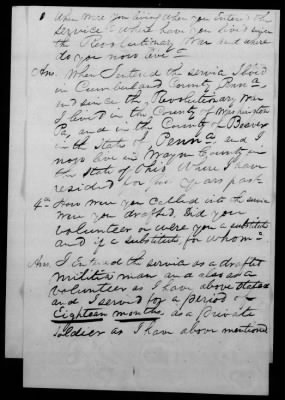 When were you living when you Entered the
service & where have you lived since
the Revolutionary War and where
do you now live
Ans. When I entered the service I lived
in Cumberland County Penna.
and since the Revolutionary War
I lived in the County of Washington
Pa, and in the County of Beaver
in the State of Penna, and I
now live in Wayne County in
the State of Ohio Where I have
resided for five years past
4th How were you called into the service
were you drafted, Did you
volunteer or were you a substitute
and if a substitute, for whom
Ans. I Entered the service as a drafted
militia man and also as a
volunteer as I have above stated
and I served for a period of
Eighteen months as a private
soldier as I have above mentioned